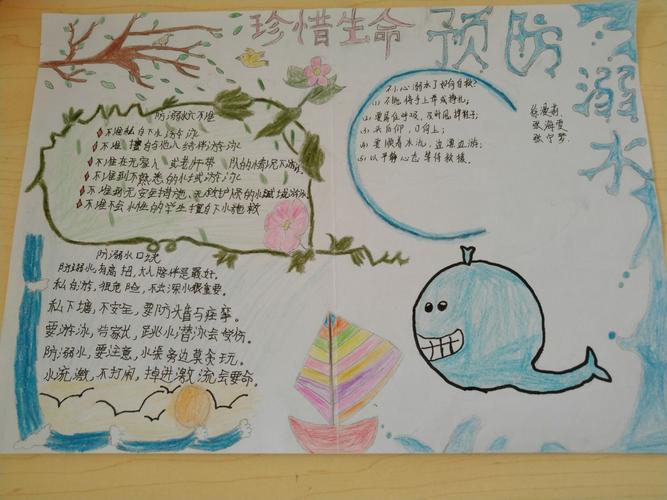 珍惜生命 预防
溺水
防溺水六不准
不准私自下水游泳
不准擅自与他人结伴游泳
不准在无家人或老师带队的情况下游泳
不准到不熟悉的水域游泳
不准到无安全措施、无救护原的水域游泳
不准不会水性的学生擅自下水施救
不小心溺水了如何自救?
(1)不能将手上举或挣扎;
(2)要屏住呼吸,及时甩掉鞋子;
(3)头后仰,口向上;
(4)要顺着水流,边漂边游;
(5)以平静心态等待救援。
张海雯
张宁梦
防溺水口诀
防溺水,有高招,大人陪伴是最好。
私自游,很危险,不去深水很重要。
私下塘,不安全,要防头晕与痉挛。
要游泳,告家长,跳水潜泳会受伤。
防溺水,要注意,水渠旁边莫贪玩。
水流激,不打闹,掉进激流会要命。